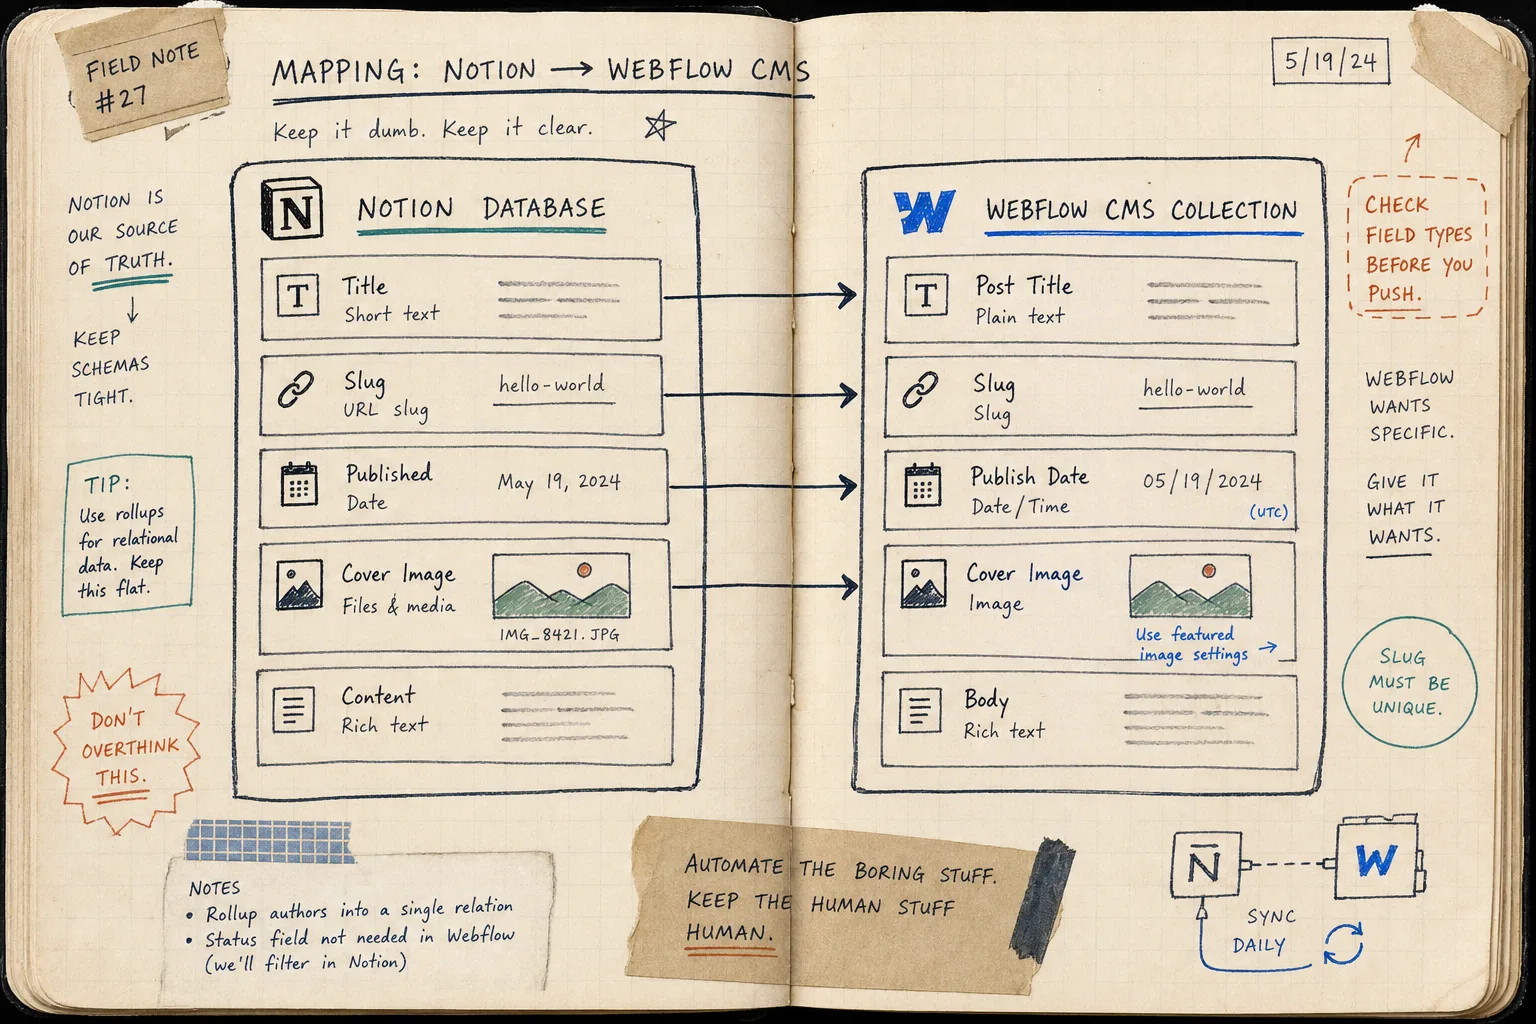 FIELD NOTE
#27
MAPPING: NOTION → WEBFLOW CMS
Keep it dumb. Keep it clear.
5/19/24
NOTION IS
OUR SOURCE
OF TRUTH.
↓
KEEP
SCHEMAS
TIGHT.
TIP:
Use rollups
for relational
data. Keep
this flat.
DON'T
OVERTHINK
THIS.
N
NOTION DATABASE
Title
Short text
Slug
URL slug
hello-world
Published
Date
May 19, 2024
Cover Image
Files & media
IMG_8421.JPG
Content
Rich text
W
WEBFLOW CMS COLLECTION
Post Title
Plain text
Slug
Slug
hello-world
Publish Date
Date/Time
05/19/2024
(UTC)
Cover Image
Image
Use featured
image settings →
Body
Rich text
CHECK
FIELD TYPES
BEFORE YOU
PUSH.
WEBFLOW
WANTS
SPECIFIC.
GIVE IT
WHAT IT
WANTS.
SLUG
MUST BE
UNIQUE.
NOTES
• Rollup authors into a single relation
• Status field not needed in Webflow
(we'll filter in Notion)
AUTOMATE THE BORING STUFF.
KEEP THE HUMAN STUFF
HUMAN.
N
W
SYNC
DAILY